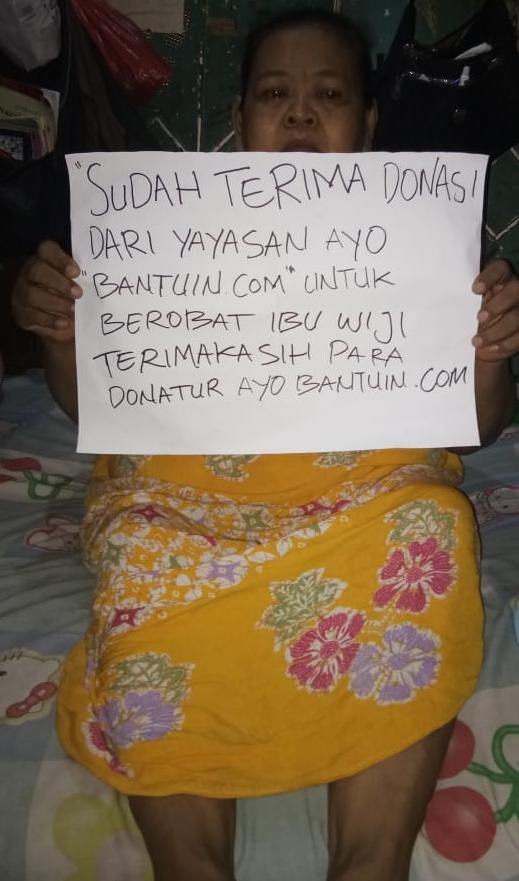 "SUDAH TERIMA DONASI
DARI YAYASAN AYO
"BANTUIN.COM" UNTUK
BEROBAT IBU WIJI
TERIMAKASIH PARA
DONATUR AYO BANTUIN.COM